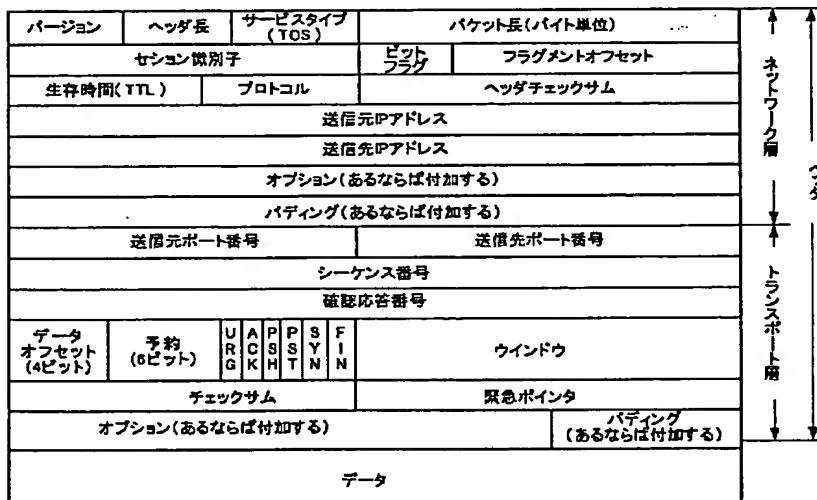 バージョン
ヘッダ長
サービスタイプ
(TOS)
パケット長(バイト単位)
セション識別子
ビット
フラグ
フラグメントオフセット
生存時間(TTL)
プロトコル
ヘッダチェックサム
送信元IPアドレス
送信先IPアドレス
オプション(あるならば付加する)
パディング(あるならば付加する)
ネットワーク層
ヘッダ
送信元ポート番号
送信先ポート番号
シーケンス番号
確認応答番号
データ
オフセット
(4ビット)
予約
(6ビット)
URG
ACK
PSH
PST
SYN
FIN
ウインドウ
チェックサム
緊急ポインタ
オプション(あるならば付加する)
パディング
(あるならば付加する)
トランスポート層
データ